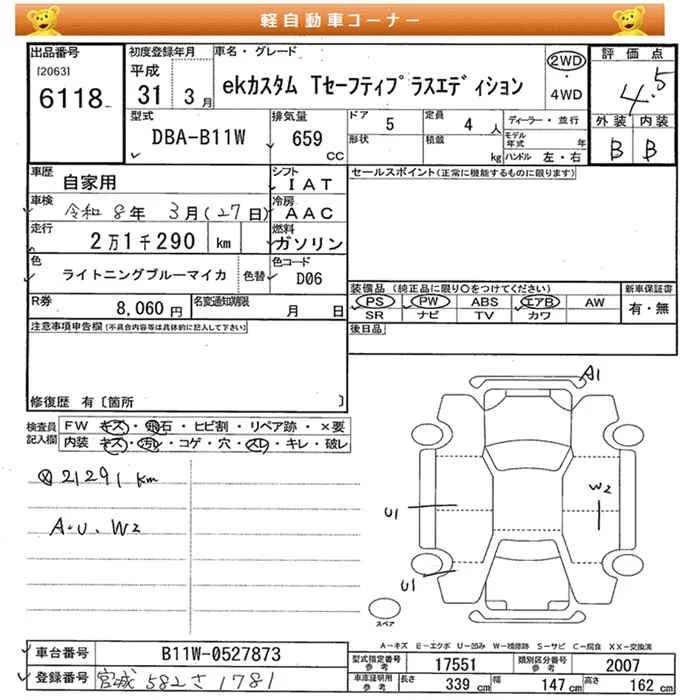 軽自動車コーナー
出品番号
[2063]
6118
初度登録年月
平成
31 3月
車名・グレード
ekカスタム Tセーフティプラスエディション
2WD
・
4WD
評価点
4.5
外装 内装
B B
型式
DBA-B11W
排気量
659
CC
ドア 5
形状
定員 4 人
積載 kg
ディーラー・並行
モデル年式 年
ハンドル 左・右
車歴
自家用
シフト
IAT
車検
令和 8年 3月(27日)
冷房
AAC
走行
2万1千290 km
燃料
ガソリン
色
ライトニングブルーマイカ
色替
色コード
D06
R券
8,060円
名変通知期限
月 日
セールスポイント(正常に機能するものに限ります)
装備品(純正品に限り○をつけてください)
PS PW ABS エアB AW
SR ナビ TV カワ
新車保証書
有・無
後日品
注意事項申告欄(不具合内容等は具体的に記入して下さい)
修復歴 有〔箇所 〕
検査員
記入欄
FW キズ・飛石・ヒビ割・リペア跡・×要
内装 キズ・汚レ・コゲ・穴・スレ・キレ・破レ
ⓧ 21291km
A・U、W2
A1
U1
W2
U1
スペア
A-キズ E-エクボ U-凹み W-補修跡 S-サビ C-腐食 XX-交換済
車台番号
B11W-0527873
登録番号
宮城 582 さ 1781
型式指定番号
参考
17551
類別区分番号
参考
2007
車庫証明用
参考
長さ 339 cm
幅 147 cm
高さ 162 cm